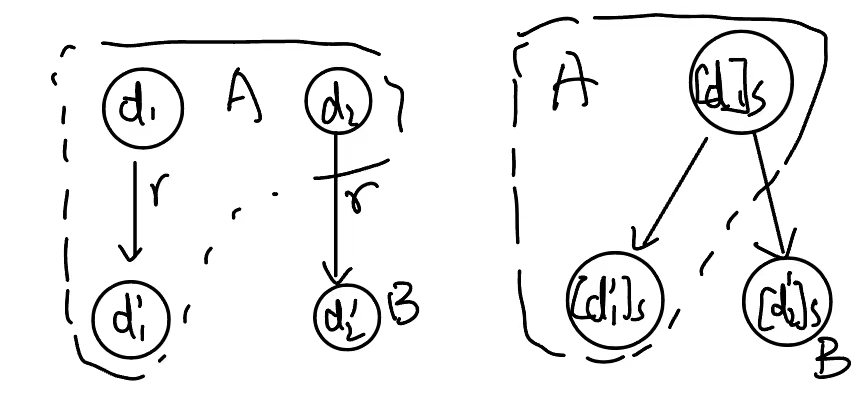 d₁ A d₂
r r
d₁' d₂' B
A [d₁]s
[d₁']s [d₂']s
B